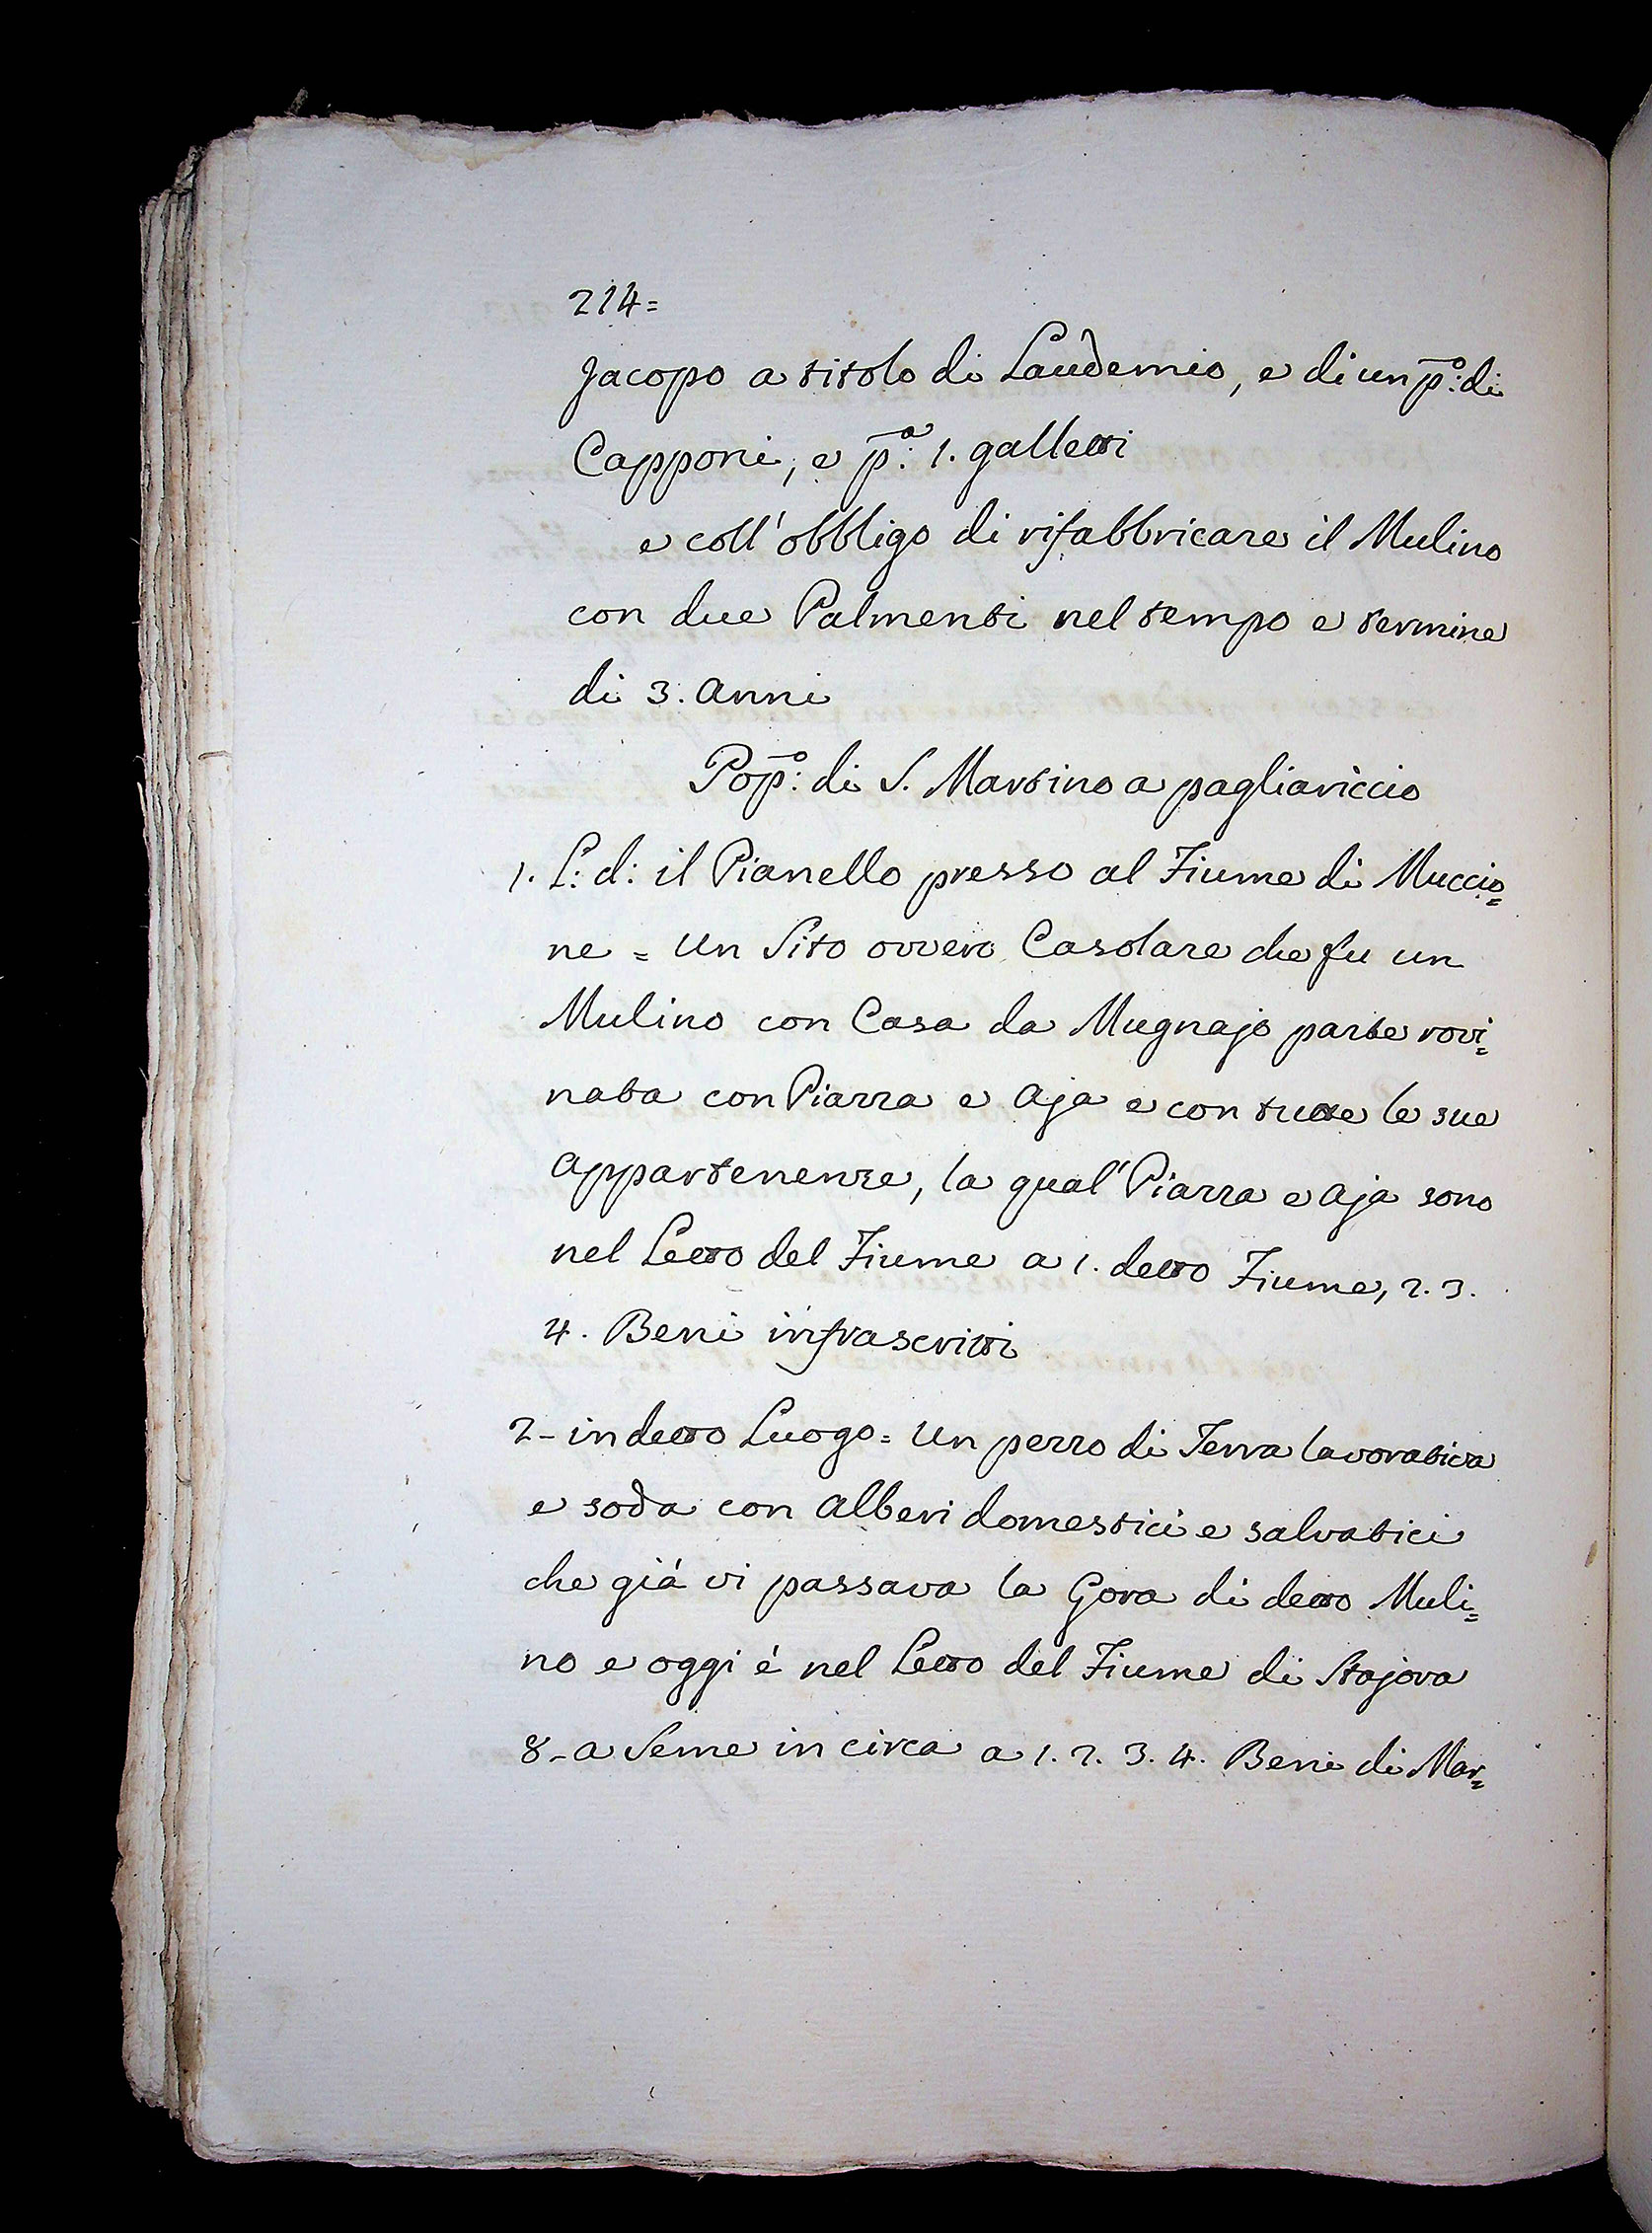 214=
Jacopo a titolo di Laudemio, e di un p.º: di
Capponi, e p.ª: 1. galletti
e coll'obbligo di rifabbricare il Mulino
con due Palmenti nel tempo e termine
di 3. Anni
Pop.º: di S. Martino a pagliariccio
1. L: d: il Pianello presso al Fiume di Muccio=
ne = Un Sito ovvero Casolare che fu un
Mulino con Casa da Mugnajo parte rovi=
nata con Piazza e Aja e con tutte le sue
Appartenenze, la qual' Piazza e Aja sono
nel Letto del Fiume a 1. detto Fiume, 2. 3.
4. Beni infrascritti
2- in detto Luogo = Un pezzo di Terra lavorativa
e soda con Alberi domestici e salvatici
che giá vi passava la Gora di detto Muli=
no e oggi é nel Letto del Fiume di Stajora
8- a Seme in circa a 1. 2. 3. 4. Beni di Mar=